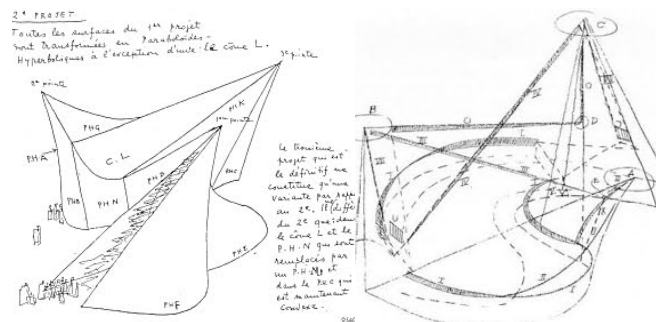 2e PROJET
Toutes les surfaces du 1er projet
sont transformées en Paraboloïdes-
Hyperboliques à l'exception d'une: le cône L.
3e pointe
2e pointe
1ère pointe
PHG
PHK
PHA
C.L
PHB
PHN
PHD
PHE
PHF
Le troisième
projet qui est
le définitif ne
constitue qu'une
variante par rapp
au 2e. Il diffè
du 2e que dans
le cône L et le
P.H.N qui sont
remplacés par
un P.H. et
dans le PHC qui
est maintenant
convexe.
B
C
D